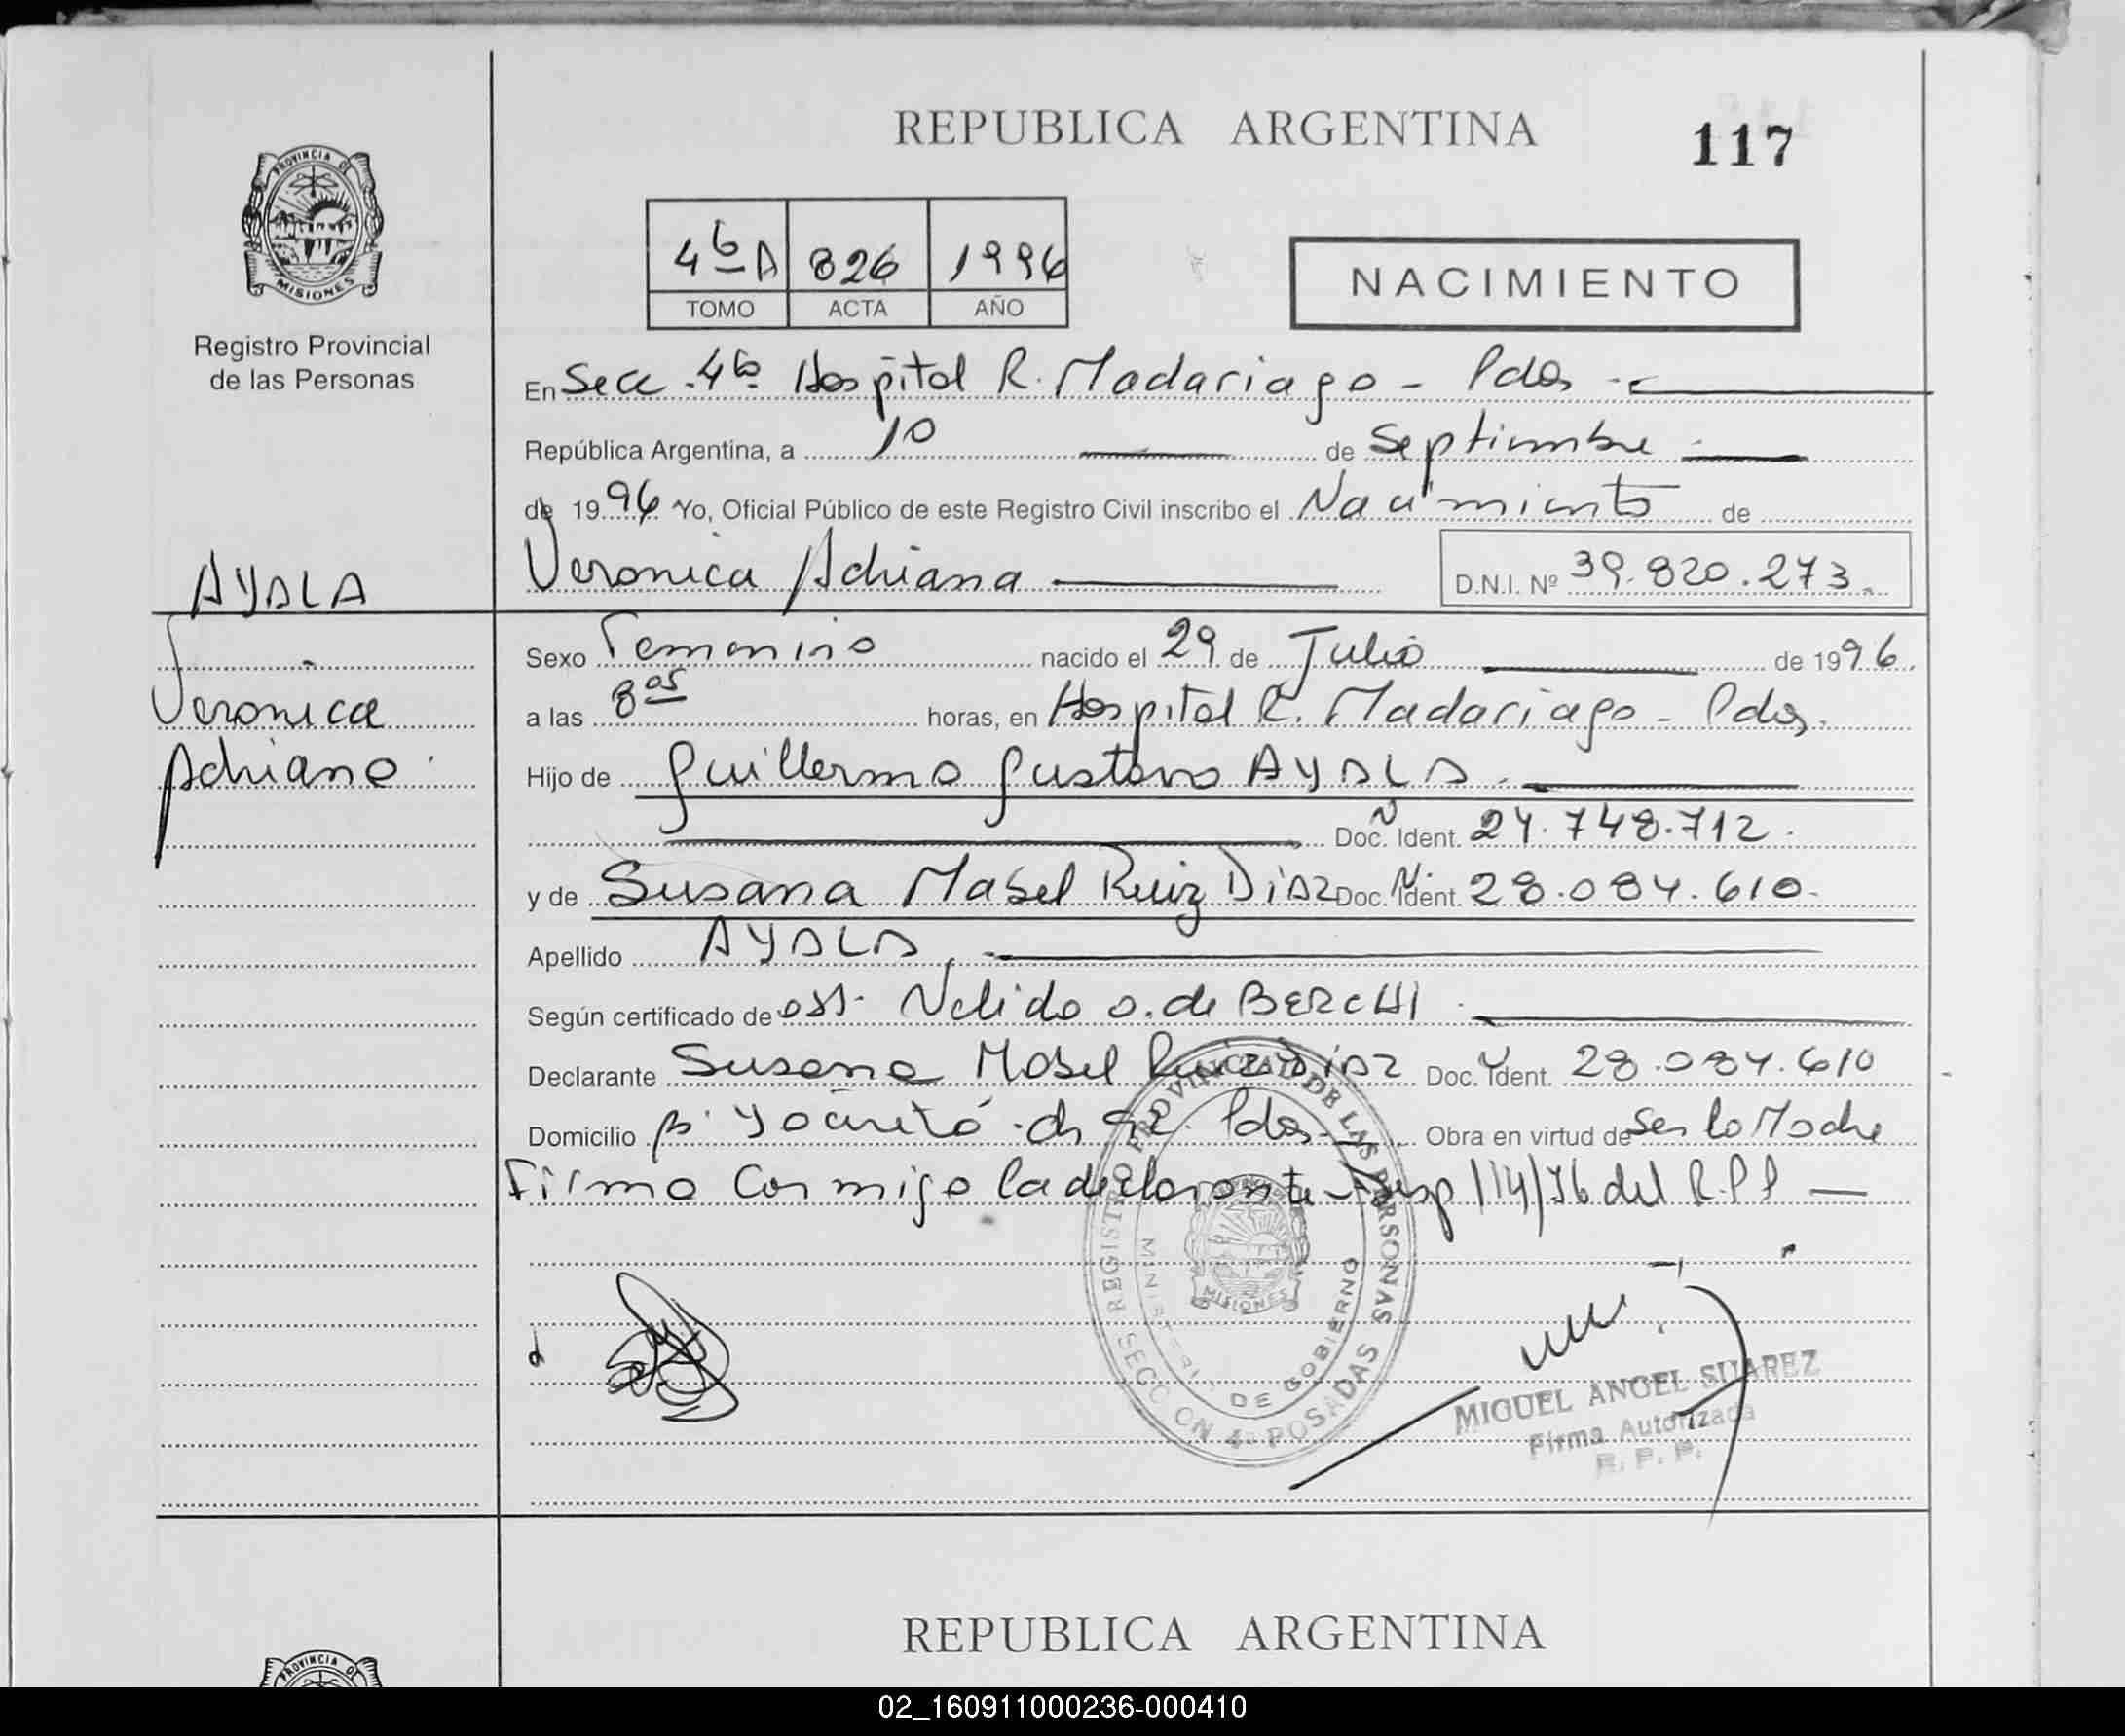 REPUBLICA ARGENTINA
117
PROVINCIA DE
MISIONES
Registro Provincial
de las Personas
4ta A 826 1996
TOMO ACTA AÑO
NACIMIENTO
En Secc. 4ta Hospital R. Madariaga - Pdas.
República Argentina, a 10 de Septiembre
de 1996 Yo, Oficial Público de este Registro Civil inscribo el Nacimiento de
Veronica Adriana D.N.I. Nº 39.820.273.
AYALA
Veronica
Adriana
Sexo Femenino nacido el 29 de Julio de 1996.
a las 8 horas, en Hospital R. Madariaga - Pdas.
Hijo de Guillermo Gustavo AYALA.
Doc. Ident. 24.748.712.
y de Susana Mabel Ruiz Diaz Doc. Ident. 28.084.610.
Apellido AYALA
Según certificado de obs. Nelida O. de BERCHI
Declarante Susana Mabel Ruiz Diaz Doc. Ident. 28.084.610
Domicilio Bº Yacyretá Pdas. Obra en virtud de Ser la Madre
Firma Conmigo la declarante Disp 114/76 del R.P.P
REGISTRO PROVINCIAL DE LAS PERSONAS
MINISTERIO DE GOBIERNO
MISIONES
SECCION 4ª POSADAS
MIGUEL ANGEL SUAREZ
Firma Autorizada
R. P. P.
REPUBLICA ARGENTINA
PROVINCIA DE
02_160911000236-000410